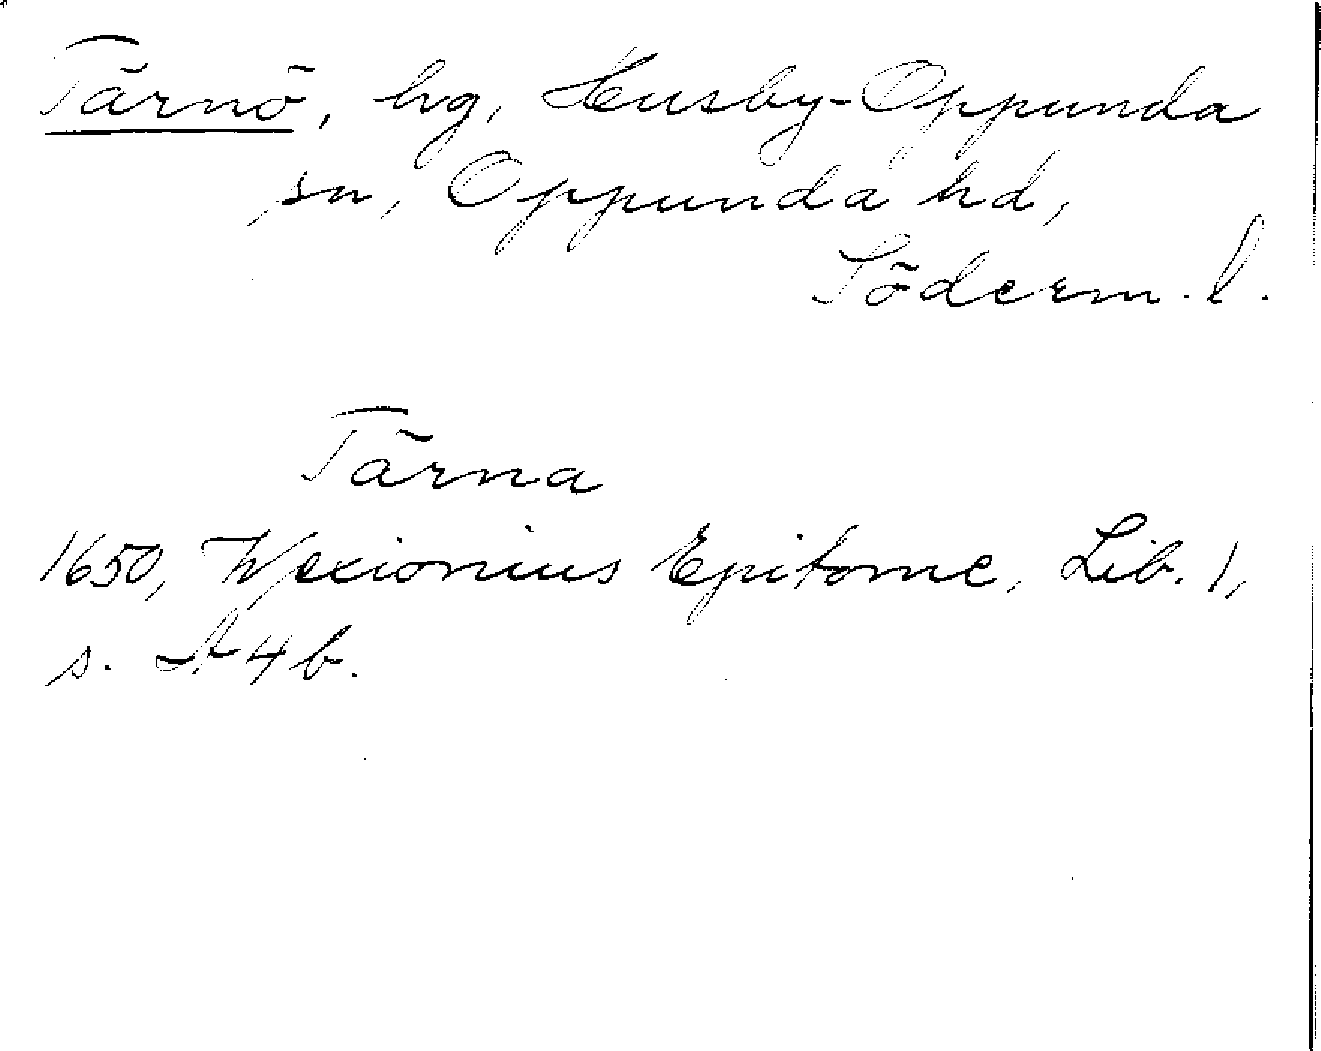 Tärnö, hg, Husby-Oppunda
sn, Oppunda hd,
Söderm. l.
Tärna
1650, Wexionius Epitome, Lib. 1,
s. A4b.